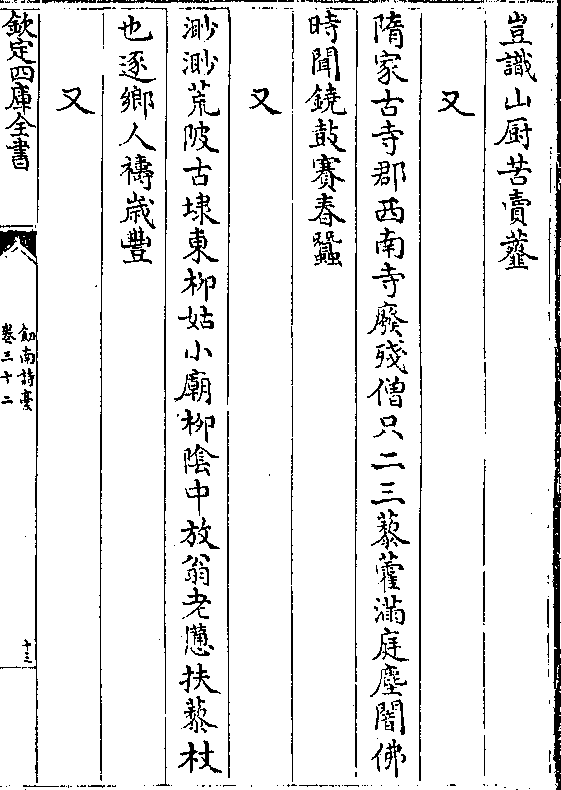 豈識山厨苦賣虀
又
隋家古寺郡西南寺廢殘僧只二三藜藿滿庭塵闇佛
時聞鐃鼓賽春蠶
又
渺渺荒陂古埭東柳姑小廟柳陰中放翁老憊扶藜杖
也逐鄉人禱歲豐
又
欽定四庫全書
劒南詩稾
卷三十二
十三